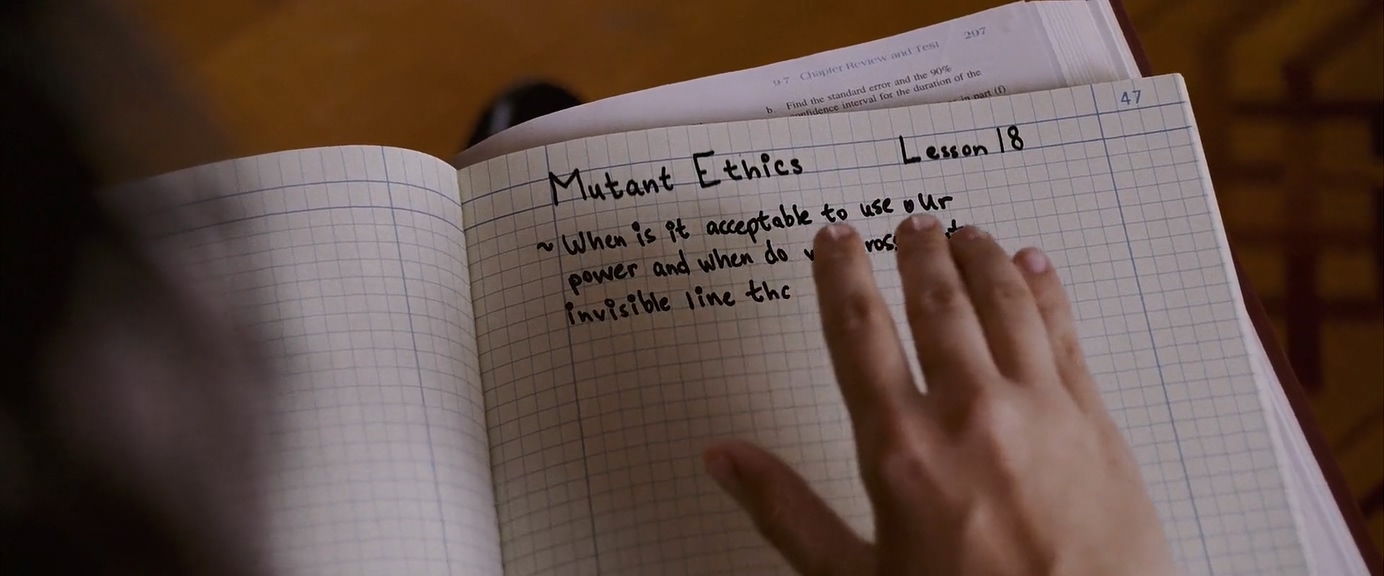 297
9-7 Chapter Review and Test
b. Find the standard error and the 90%
confidence interval for the duration of the
in part (f)
47
Mutant Ethics Lesson 18
~ When is it acceptable to use our
power and when do
invisible line tha